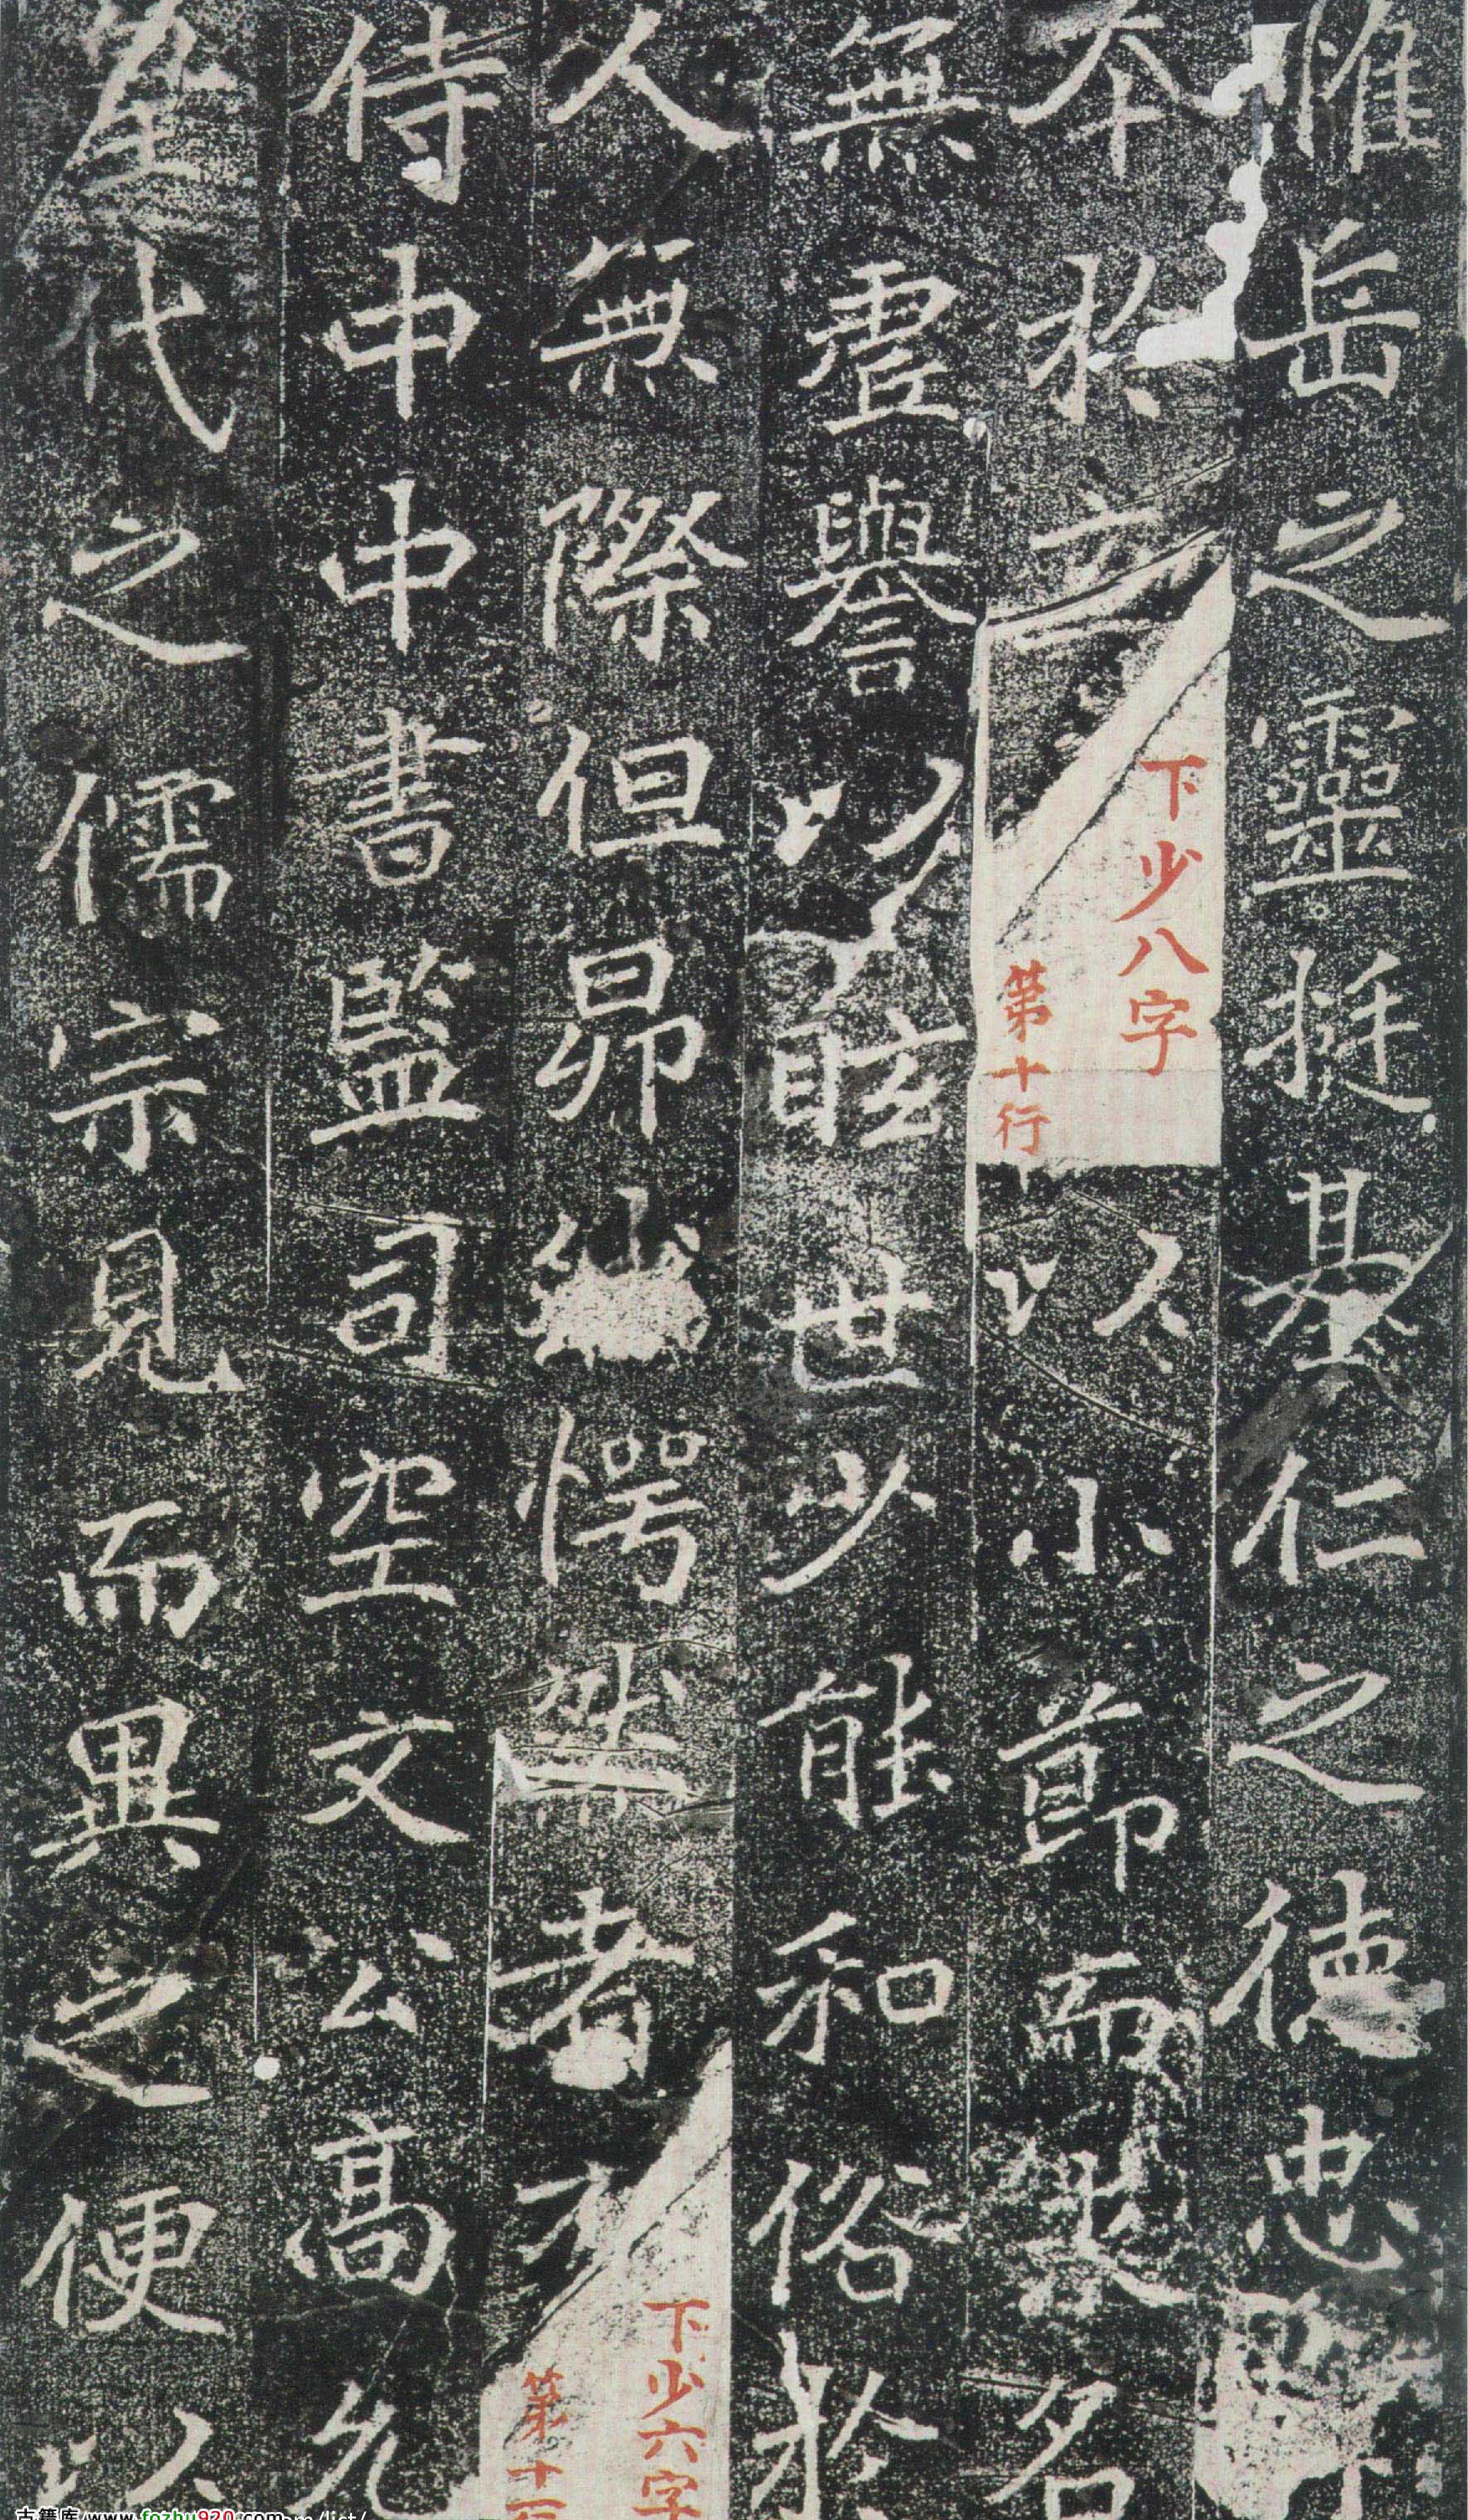 惟岳之靈挺基仁之德忠
本於
下少八字
第十行
以小節而求名
無虛譽以眩世少能和俗於
人無際但昂然愕然者
下少六字
第十一
侍中中書監司空文公高允
代之儒宗見而異之便以
古籍库 www.fozhu920.com/list/